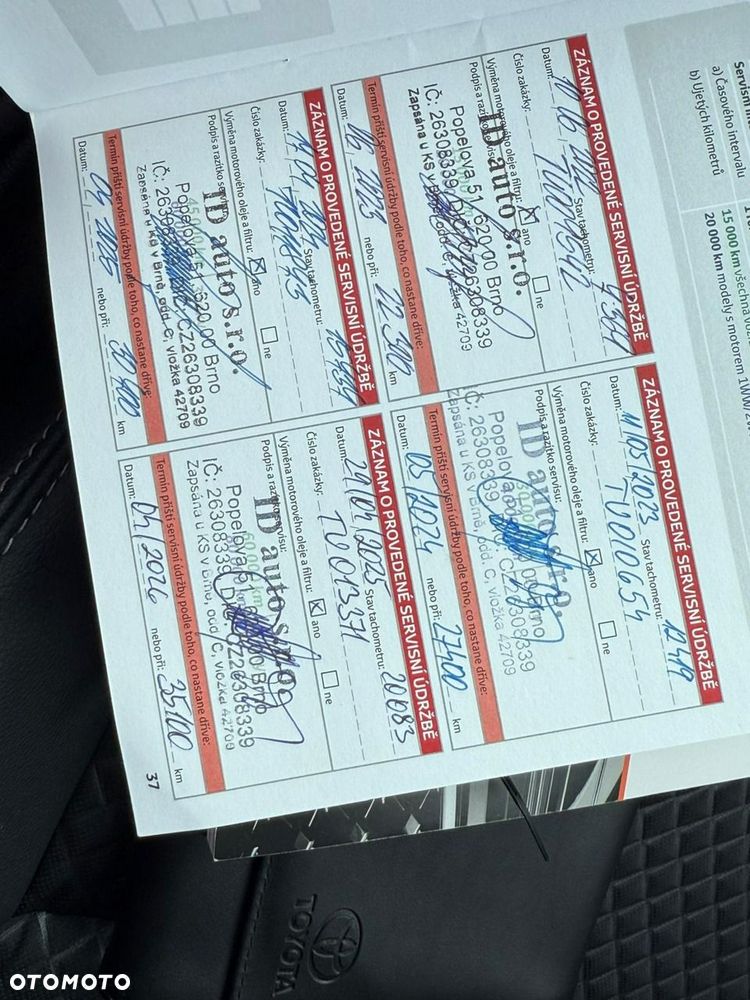 Servisní in
a) Časového intervalu
b) Ujetých kilometrů
15 000 km všechna v
20 000 km modely s motorem 1WW/2W
ZÁZNAM O PROVEDENÉ SERVISNÍ ÚDRŽBĚ
Datum: Stav tachometru:
Číslo zakázky:
Výměna motorového oleje a filtru: ☒ ano ☐ ne
Podpis a razítko servisu:
ID auto s.r.o.
Popelova 51, 620 00 Brno
IČ: 26308339, DIČ: CZ26308339
Zapsána u KS v Brně, odd. C, vložka 42709
Termín příští servisní údržby podle toho, co nastane dříve:
Datum: nebo při: 22 500 km
ZÁZNAM O PROVEDENÉ SERVISNÍ ÚDRŽBĚ
Datum: 11/05/2023 Stav tachometru: 12 419
Číslo zakázky: TV000654
Výměna motorového oleje a filtru: ☒ ano ☐ ne
Podpis a razítko servisu:
ID auto s.r.o.
Popelova
IČ: 26308339, CZ26308339
Zapsána u KS v Brně, odd. C, vložka 42709
Termín příští servisní údržby podle toho, co nastane dříve:
Datum: 05/2024 nebo při: 27400 km
ZÁZNAM O PROVEDENÉ SERVISNÍ ÚDRŽBĚ
Datum: Stav tachometru:
Číslo zakázky:
Výměna motorového oleje a filtru: ☒ ano ☐ ne
Podpis a razítko servisu:
ID auto s.r.o.
Popelova 51, 620 00 Brno
IČ: 26308339, CZ26308339
Zapsána u KS v Brně, odd. C, vložka 42709
Termín příští servisní údržby podle toho, co nastane dříve:
Datum: nebo při: km
ZÁZNAM O PROVEDENÉ SERVISNÍ ÚDRŽBĚ
Datum: 29/04/2025 Stav tachometru: 20083
Číslo zakázky: TV013371
Výměna motorového oleje a filtru: ☒ ano ☐ ne
Podpis a razítko servisu:
ID auto s.r.o.
Popelova Brno
IČ: 26308339, CZ26308339
Zapsána u KS v Brně, odd. C, vložka 42709
Termín příští servisní údržby podle toho, co nastane dříve:
Datum: 04/2026 nebo při: 35100 km
37
TOYOTA
OTOMOTO